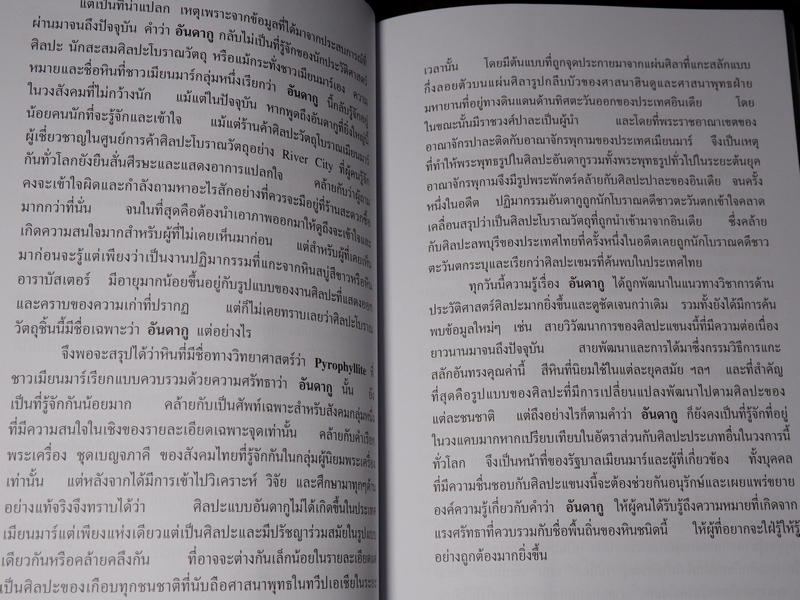 แต่เป็นที่น่าแปลก เหตุเพราะจากข้อมูลที่ได้มาจากประสบการณ์ที่
ผ่านมาจนถึงปัจจุบัน คำว่า อันดากู กลับไม่เป็นที่รู้จักของนักประวัติศาสตร์
ศิลปะ นักสะสมศิลปะโบราณวัตถุ หรือแม้กระทั่งชาวเมียนมาร์เอง ความ
หมายและชื่อหินที่ชาวเมียนมาร์กลุ่มหนึ่งเรียกว่า อันดากู นี้กลับรู้จักอยู่
ในวงสังคมที่ไม่กว้างนัก แม้แต่ในปัจจุบัน หากพูดถึงอันดากูที่ยิ่งใหญ่นี้
น้อยคนนักที่จะรู้จักและเข้าใจ แม้แต่ร้านค้าศิลปะวัตถุโบราณเมียนมาร์
ผู้เชี่ยวชาญในศูนย์การค้าศิลปะโบราณวัตถุอย่าง River City ที่ผู้คนรู้จัก
กันทั่วโลกยังยืนสั่นศีรษะและแสดงอาการแปลกใจ คล้ายกับว่าผู้ถาม
คงจะเข้าใจผิดและกำลังถามหาอะไรสักอย่างที่ควรจะมีอยู่ที่ร้านสะดวกซื้อ
มากกว่าที่นั่น จนในที่สุดคือต้องนำเอาภาพออกมาให้ดูถึงจะเข้าใจและ
เกิดความสนใจมากสำหรับผู้ที่ไม่เคยเห็นมาก่อน แต่สำหรับผู้ที่เคยเห็น
มาก่อนจะรู้แต่เพียงว่าเป็นงานปฏิมากรรมที่แกะจากหินสบู่สีขาวหรือหิน
อาราบัสเตอร์ มีอายุมากน้อยขึ้นอยู่กับรูปแบบของงานศิลปะที่แสดงออก
และคราบของความเก่าที่ปรากฏ แต่ก็ไม่เคยทราบเลยว่าศิลปะโบราณ
วัตถุชิ้นนี้มีชื่อเฉพาะว่า อันดากู แต่อย่างไร
จึงพอจะสรุปได้ว่าหินที่มีชื่อทางวิทยาศาสตร์ว่า Pyrophyllite ที่
ชาวเมียนมาร์เรียกแบบควบรวมด้วยความศรัทธาว่า อันดากู นั้น ยัง
เป็นที่รู้จักกันน้อยมาก คล้ายกับเป็นศัพท์เฉพาะสำหรับสังคมกลุ่มหนึ่ง
ที่มีความสนใจในเชิงของรายละเอียดเฉพาะจุดเท่านั้น คล้ายกับคำเรียก
พระเครื่อง ชุดเบญจภาคี ของสังคมไทยที่รู้จักกันในกลุ่มผู้นิยมพระเครื่อง
เท่านั้น แต่หลังจากได้มีการเข้าไปวิเคราะห์ วิจัย และศึกษามาทุกๆด้าน
อย่างแท้จริงจึงทราบได้ว่า ศิลปะแบบอันดากูไม่ได้เกิดขึ้นในประเทศ
เมียนมาร์แต่เพียงแห่งเดียวแต่เป็นศิลปะและมีปรัชญาร่วมสมัยในรูปแบบ
เดียวกันหรือคล้ายคลึงกัน ที่อาจจะต่างกันเล็กน้อยในรายละเอียดและ
เป็นศิลปะของเกือบทุกชนชาติที่นับถือศาสนาพุทธในทวีปเอเชียในระยะ
เวลานั้น โดยมีต้นแบบที่ถูกจุดประกายมาจากแผ่นศิลาที่แกะสลักแบบ
กึ่งลอยตัวบนแผ่นศิลารูปกลีบบัวของศาสนาฮินดูและศาสนาพุทธฝ่าย
มหายานที่อยู่ทางดินแดนด้านทิศตะวันออกของประเทศอินเดีย โดย
ในขณะนั้นมีราชวงศ์ปาละเป็นผู้นำ และโดยที่พระราชอาณาเขตของ
อาณาจักรปาละติดกับอาณาจักรพุกามของประเทศเมียนมาร์ จึงเป็นเหตุ
ที่ทำให้พระพุทธรูปในศิลปะอันดากูรวมทั้งพระพุทธรูปทั่วไปในระยะต้นยุค
อาณาจักรพุกามจึงมีรูปพระพักตร์คล้ายกับศิลปะปาละของอินเดีย จนครั้ง
หนึ่งในอดีต ปฏิมากรรมอันดากูถูกนักโบราณคดีชาวตะวันตกเข้าใจคลาด
เคลื่อนสรุปว่าเป็นศิลปะโบราณวัตถุที่ถูกนำเข้ามาจากอินเดีย ซึ่งคล้าย
กับศิลปะลพบุรีของประเทศไทยที่ครั้งหนึ่งในอดีตเคยถูกนักโบราณคดีชาว
ตะวันตกระบุและเรียกว่าศิลปะเขมรที่ค้นพบในประเทศไทย
ทุกวันนี้ความรู้เรื่อง อันดากู ได้ถูกพัฒนาในแนวทางวิชาการด้าน
ประวัติศาสตร์ศิลปะมากยิ่งขึ้นและดูชัดเจนกว่าเดิม รวมทั้งยังได้มีการค้น
พบข้อมูลใหม่ๆ เช่น สายวิวัฒนาการของศิลปะแขนงนี้ที่มีความต่อเนื่อง
ยาวนานมาจนถึงปัจจุบัน สายพัฒนาและการได้มาซึ่งกรรมวิธีการแกะ
สลักอันทรงคุณค่านี้ สีหินที่นิยมใช้ในแต่ละยุคสมัย ฯลฯ และที่สำคัญ
ที่สุดคือรูปแบบของศิลปะที่มีการเปลี่ยนแปลงพัฒนาไปตามศิลปะของ
แต่ละชนชาติ แต่ถึงอย่างไรก็ตามคำว่า อันดากู ก็ยังคงเป็นที่รู้จักที่อยู่
ในวงแคบมากหากเปรียบเทียบในอัตราส่วนกับศิลปะประเภทอื่นในวงการนี้
ทั่วโลก จึงเป็นหน้าที่ของรัฐบาลเมียนมาร์และผู้ที่เกี่ยวข้อง ทั้งบุคคล
ที่มีความชื่นชอบกับศิลปะแขนงนี้จะต้องช่วยกันอนุรักษ์และเผยแพร่ขยาย
องค์ความรู้เกี่ยวกับคำว่า อันดากู ให้ผู้คนได้รับรู้ถึงความหมายที่เกิดจาก
แรงศรัทธาที่ควบรวมกับชื่อพื้นถิ่นของหินชนิดนี้ ให้ผู้ที่อยากจะใฝ่รู้ให้รู้
อย่างถูกต้องมากยิ่งขึ้น